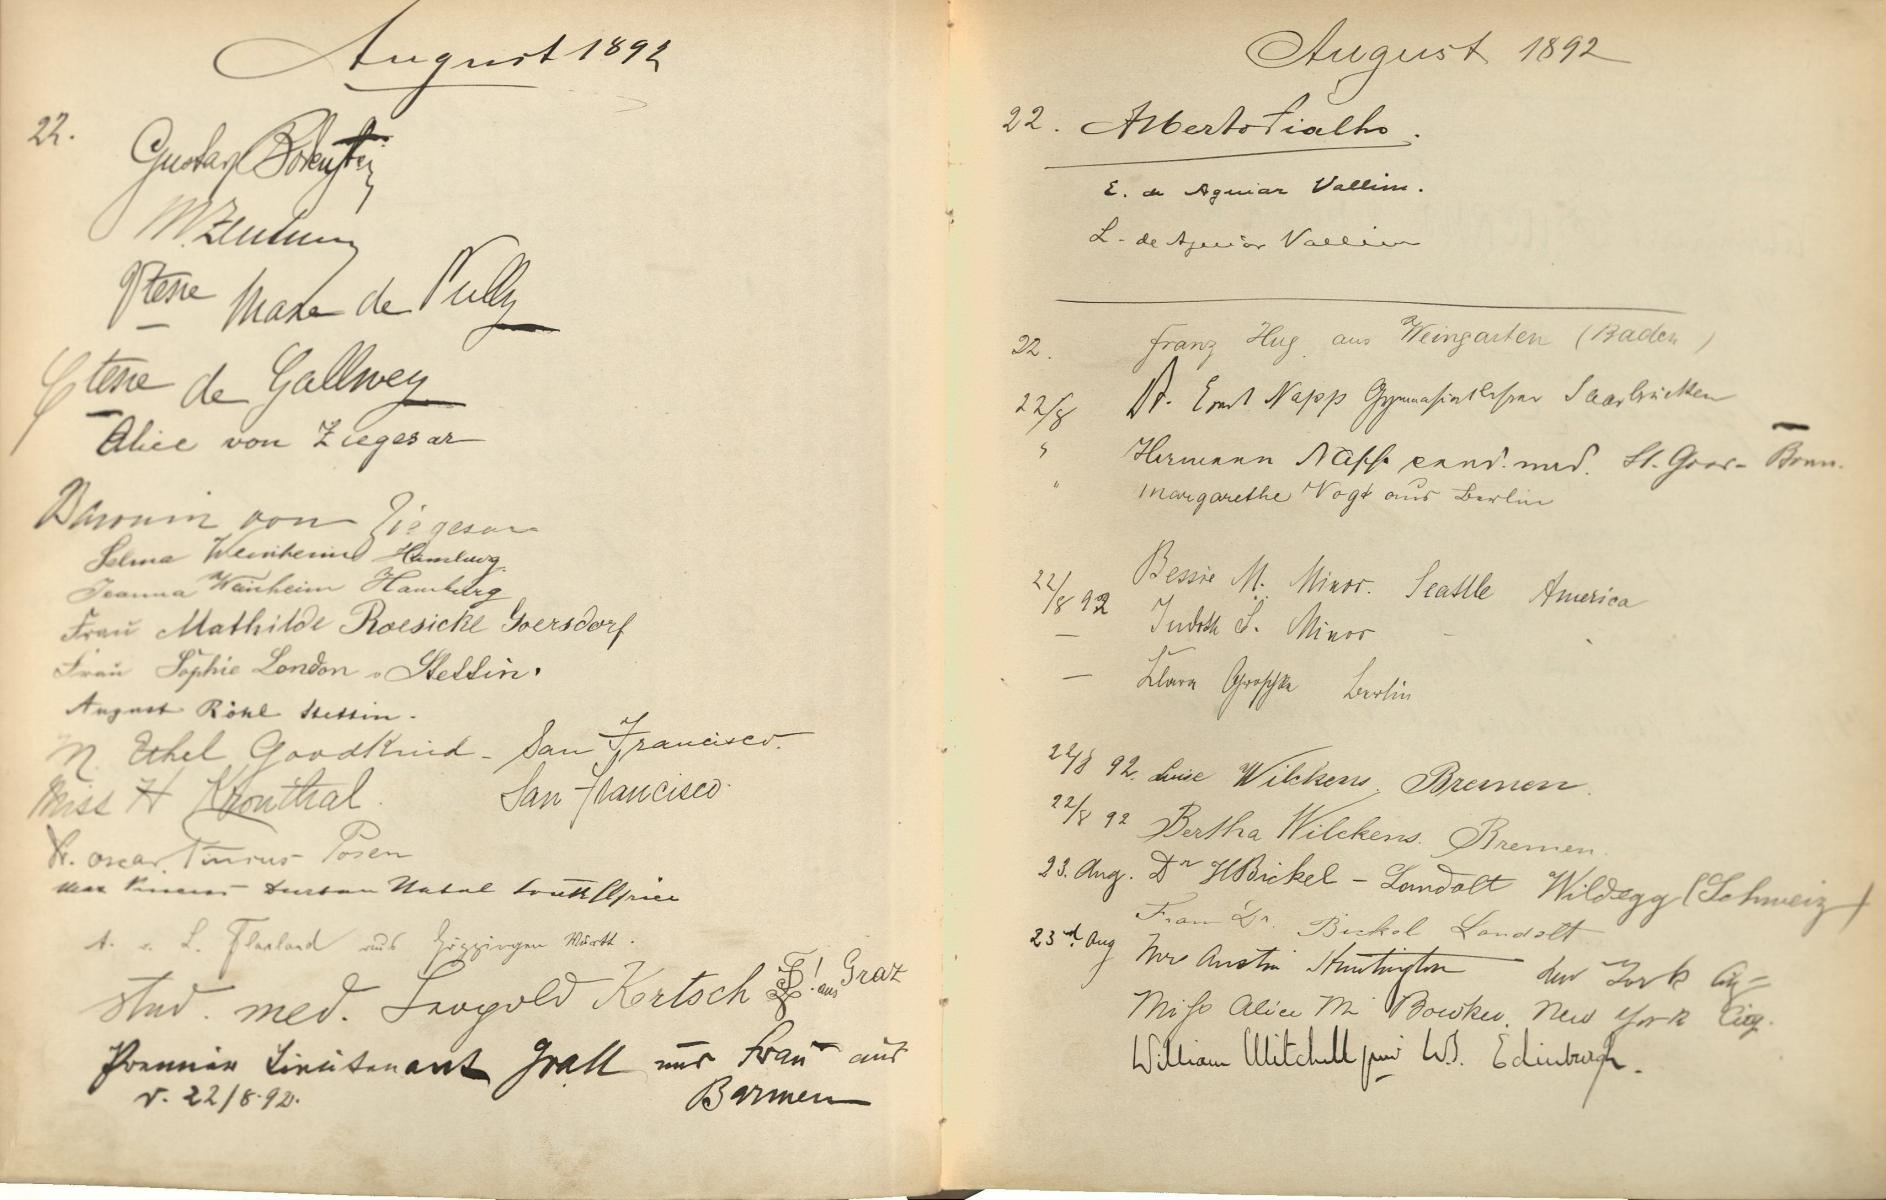 August 1892
22.
Gustav
de
Ctesse de Gallwey
Alice von Ziegesar
Baronin von Ziegesar
Selma Weinheim Hamburg.
Jeanna Weinheim Hamburg
Frau Mathilde Roesicke Goersdorf
Frau Sophie London Stettin.
August Röhl Stettin.
Ethel Goodkind - San Francisco.
Miss H Kronthal. San Francisco.
Dr. Oscar Posen
Durban Natal South Africa
A. L. aus Göppingen Württ.
stud. med. Leopold Kertsch ! aus Graz
Premier Lieutenant Grall und Frau aus
Barmen
d. 22/8.92.
August 1892
22. Alberto Fialho.
E. de Aguiar Vallim.
L. de Aguiar Vallim
22. Franz Hug aus Weingarten (Baden)
22/8 Dr. Ernst Napp Gymnasiallehrer Saarbrücken
" Hermann Napp cand. med. St. Goar - Bonn.
" Margarethe Vogt aus Berlin
22/8 92 Bessie M. Minor. Seattle America
— Judith S. Minor
— Klara Berlin
22/8 92. Luise Wilckens, Bremen.
22/8 92 Bertha Wilckens. Bremen.
23. Aug. Dr H Bickel - Landolt Wildegg (Schweiz)
Frau Dr. Bickel Landolt
23d. Aug Mrs Austin Huntington New York City
Miss Alice M. Bowker. New York City.
William Mitchell junr WS. Edinburgh.